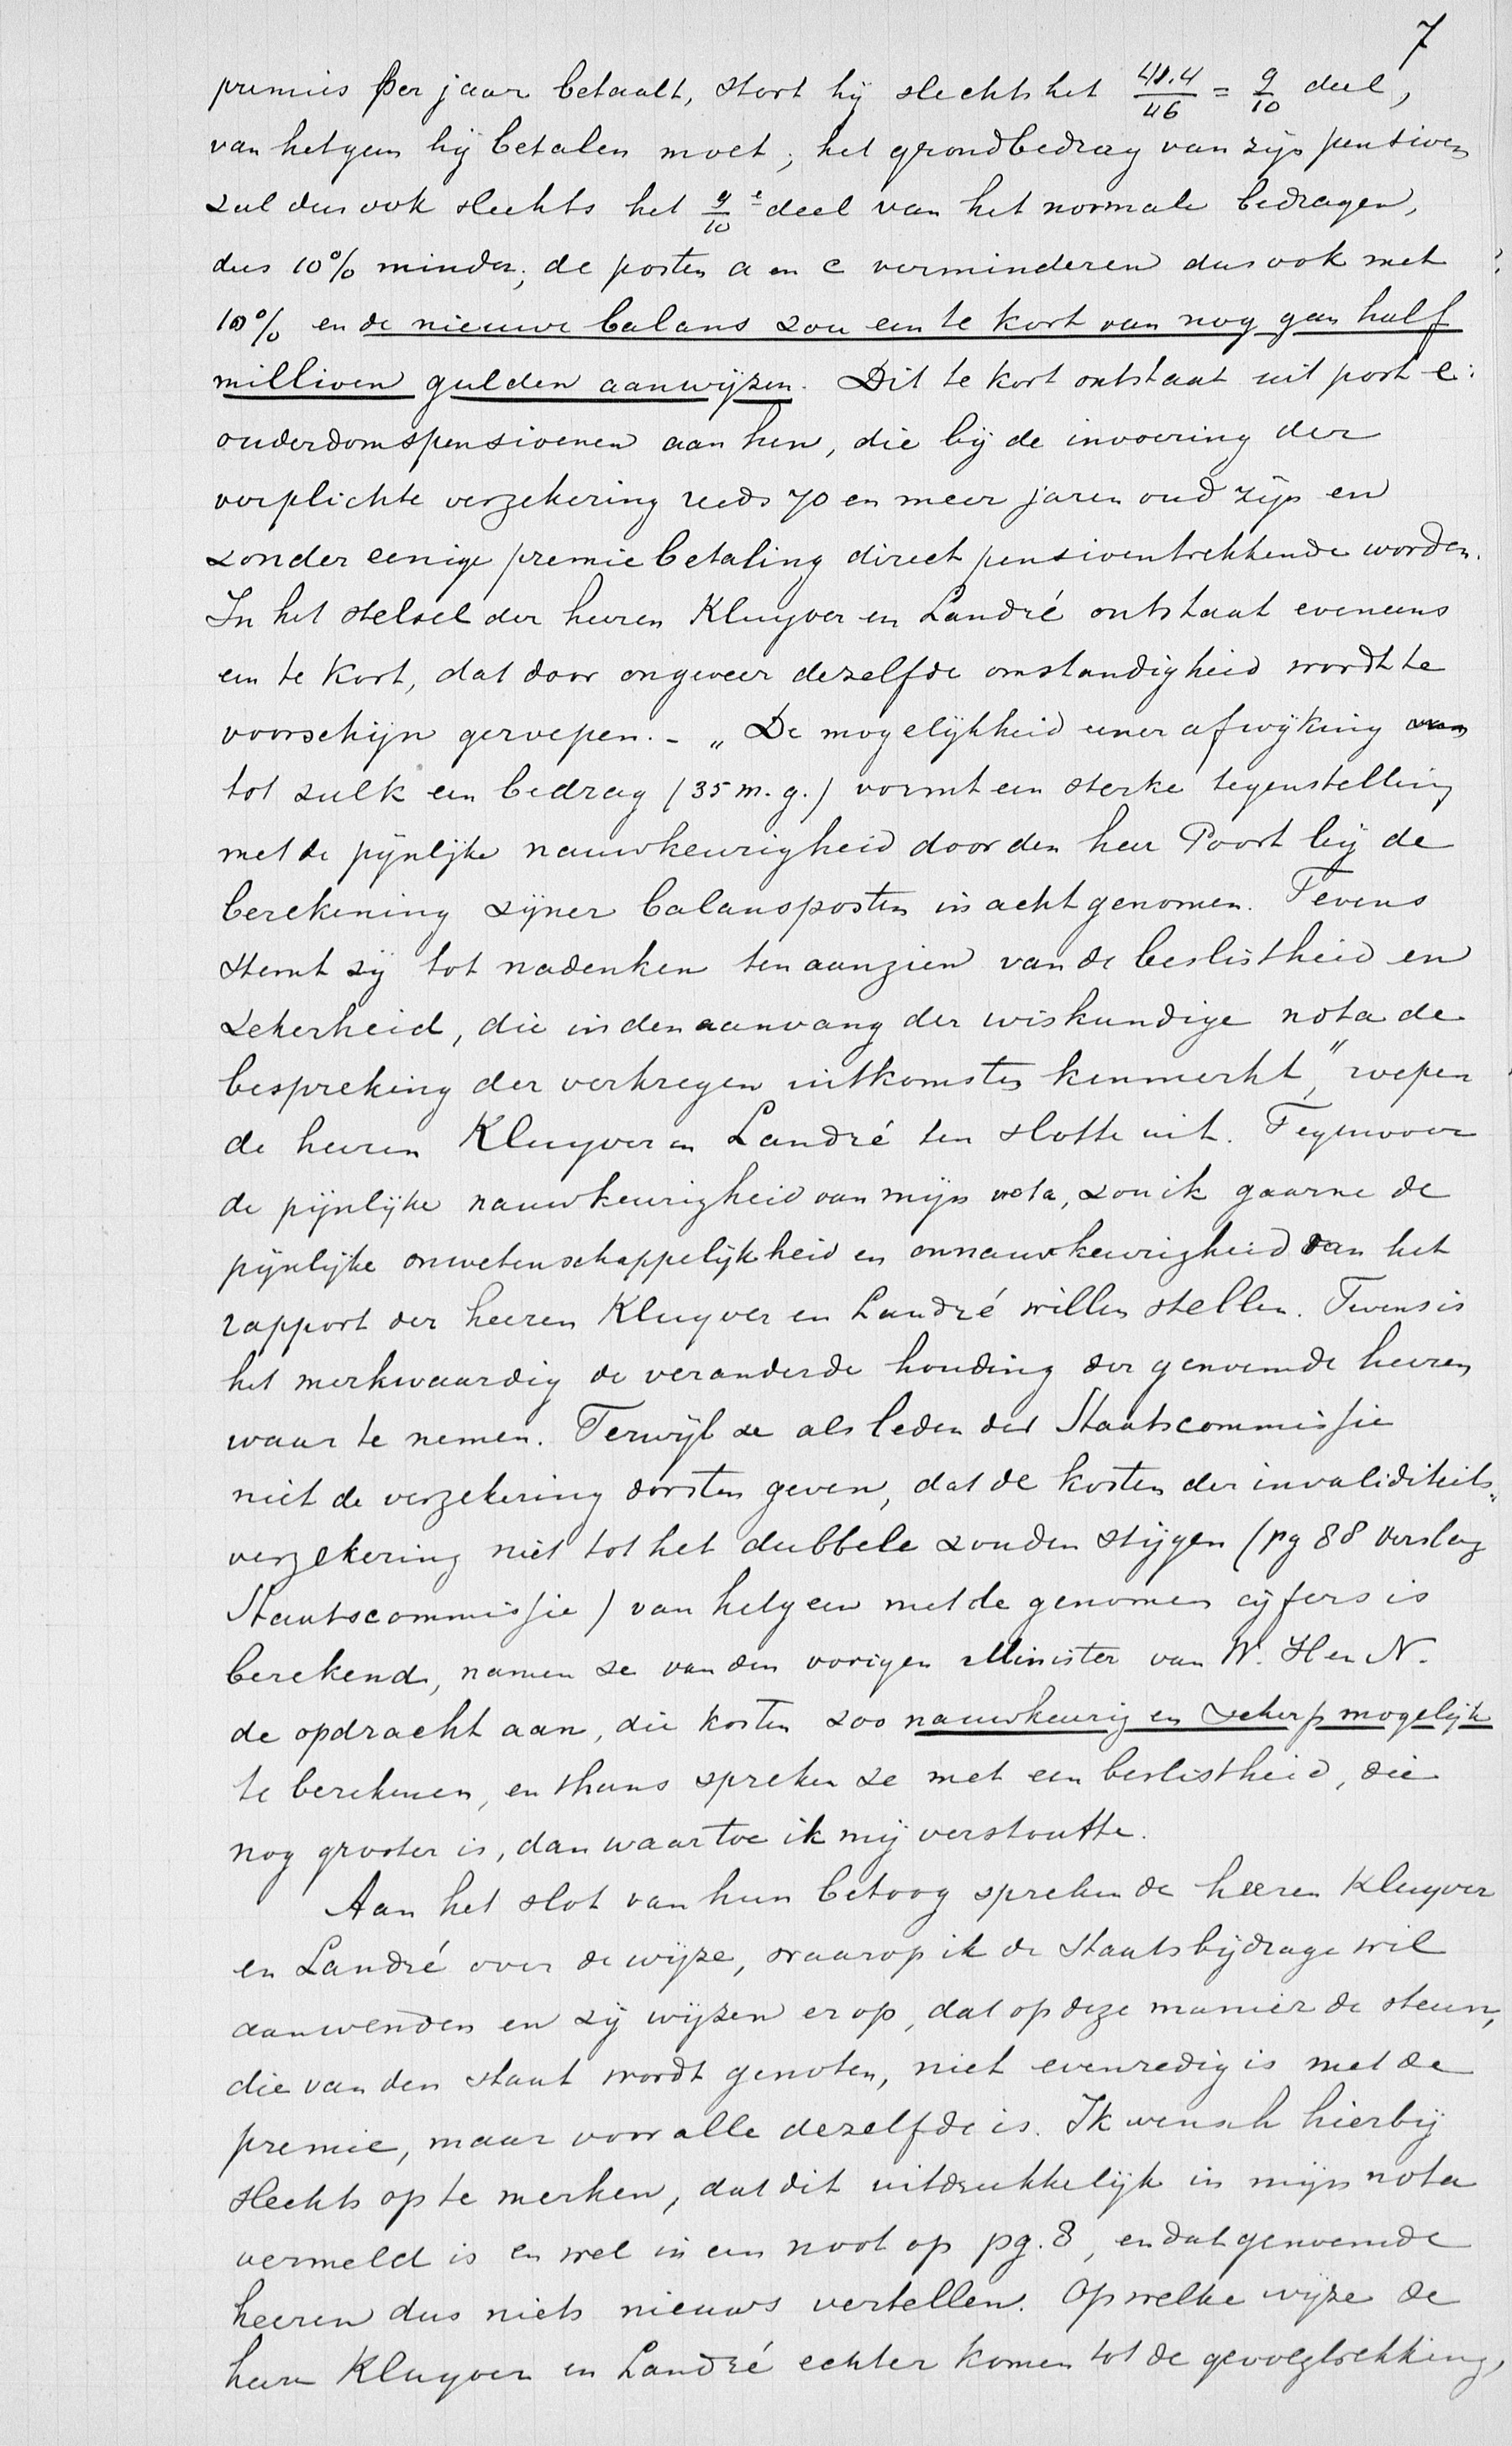 7
premies per jaar betaalt, stort hij slechts het 41.4/46 = 9/10 deel,
van hetgeen hij betalen moet; het grondbedrag van zijn pensioen
zal dus ook slechts het 9/10e deel van het normale bedragen,
dus 10% minder; de posten a en c verminderen dus ook met
10% en de nieuwe balans zou een te kort van nog geen half
millioen gulden aanwijzen. Dit te kort ontstaat uit post e:
ouderdomspensioenen aan hen, die bij de invoering der
verplichte verzekering reeds 70 en meer jaren oud zijn en
zonder eenige premiebetaling direct pensioentrekkende worden.
In het stelsel der heeren Kluyver en Landré ontstaat eveneens
een te kort, dat door ongeveer dezelfde omstandigheid wordt te
voorschijn geroepen. - „De mogelijkheid eener afwijking
tot zulk een bedrag (35 m. g.) vormt een sterke tegenstelling
met de pijnlijke nauwkeurigheid door den heer Poort bij de
berekening zijner balansposten in acht genomen. Tevens
stemt zij tot nadenken ten aanzien van de beslistheid en
zekerheid, die in den aanvang der wiskundige nota de
bespreking der verkregen uitkomsten kenmerkt", roepen
de heeren Kluyver en Landré ten slotte uit. Tegenover
de pijnlijke nauwkeurigheid van mijn nota, zou ik gaarne de
pijnlijke onwetenschappelijkheid en onnauwkeurigheid van het
rapport der heeren Kluyver en Landré willen stellen. Tevens is
het merkwaardig de veranderde houding der genoemde heeren
waar te nemen. Terwijl ze als leden der Staatscommissie
niet de verzekering dorsten geven, dat de kosten der invaliditeits-
verzekering niet tot het dubbele zouden stijgen (pg 88 Verslag
Staatscommissie) van hetgeen met de genomen cijfers is
berekend, namen ze van den vorigen Minister van W. H en N.
de opdracht aan, die kosten zoo nauwkeurig en scherp mogelijk
te berekenen, en thans spreken ze met een beslistheid, die
nog grooter is, dan waartoe ik mij verstoutte.
Aan het slot van hun betoog spreken de heeren Kluyver
en Landré over de wijze, waarop ik de Staatsbijdrage wil
aanwenden en zij wijzen er op, dat op deze manier de steun,
die van den staat wordt genoten, niet evenredig is met de
premie, maar voor alle dezelfde is. Ik wensch hierbij
slechts op te merken, dat dit uitdrukkelijk in mijn nota
vermeld is en wel in een noot op pg. 8, en dat genoemde
heeren dus niets nieuws vertellen. Op welke wijze de
heeren Kluyver en Landré echter komen tot de gevolgtrekking,